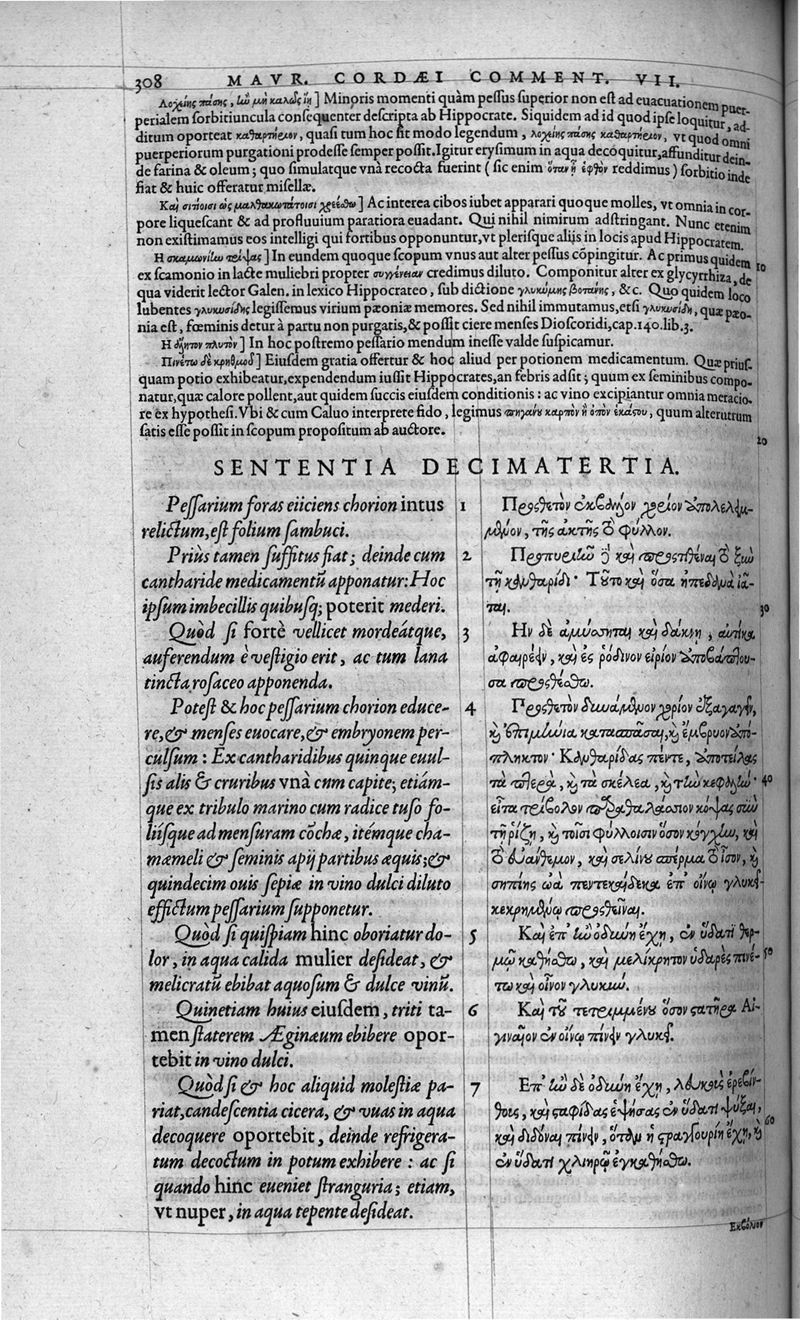 308 MAVR. CORDÆI COMMENT. VII.
Λοχείης πάσης, ἰὼ μὴ καλῶς ἴῃ] Minoris momenti quàm pessus superior non est ad euacuationem puer-
perialem sorbitiuncula consequenter descripta ab Hippocrate. Siquidem ad id quod ipse loquitur, ad-
ditum oporteat καθαρτήριον, quasi tum hoc sit modo legendum, λοχείης πάσης καθαρτήριον, vt quod omni
puerperiorum purgationi prodesse semper possit. Igitur erysimum in aqua decoquitur, affunditur dein-
de farina & oleum; quo simulatque vnà recocta fuerint (sic enim ὅταν ᾖ ἑφθὸν reddimus) sorbitio inde
fiat & huic offeratur misellæ.
Καὶ σιτίοισι ὡς μαλθακωτάτοισι χρείσθω] Ac interea cibos iubet apparari quoque molles, vt omnia in cor-
pore liquescant & ad profluuium paratiora euadant. Qui nihil nimirum adstringant. Nunc etenim
non existimamus eos intelligi qui fortibus opponuntur, vt plerisque aliis in locis apud Hippocratem.
Η σκαμωνίἰω τρίψας] In eundem quoque scopum vnus aut alter pessus cōpingitur. Ac primus quidem
10
ex scamonio in lacte muliebri propter συγγένειαν credimus diluto. Componitur alter ex glycyrrhiza, de
qua viderit lector Galen. in lexico Hippocrateo, sub dictione γλυκύμης βοτάνης, &c. Quo quidem loco
lubentes γλυκυσίδης legissemus virium pæoniæ memores. Sed nihil immutamus, etsi γλυκυσίδη, quæ pæo-
nia est, fœminis detur à partu non purgatis, & possit ciere menses Dioscoridi, cap. 140. lib. 3.
Η πλυτὸν] In hoc postremo pessario mendum inesse valde suspicamur.
Πινέτω δὲ κρήθμου] Eiusdem gratia offertur & hoc aliud per potionem medicamentum. Quæ prius-
quam potio exhibeatur, expendendum iussit Hippocrates, an febris adsit; quum ex seminibus compo-
natur, quæ calore pollent, aut quidem succis eiusdem conditionis: ac vino excipiantur omnia meracio-
re ex hypothesi. Vbi & cum Caluo interprete fido, legimus πηγάνου καρπὸν ἢ ὀπὸν ἑκάστου, quum alterutrum
satis esse possit in scopum propositum ab auctore.
20
SENTENTIA DECIMATERTIA.
Pessarium foras eiiciens chorion intus
relictum, est folium sambuci.
Priùs tamen suffitus fiat; deinde cum
cantharide medicamentū apponatur: Hoc
ipsum imbecillis quibusq; poterit mederi.
Quòd si fortè vellicet mordeátque,
auferendum è vestigio erit, ac tum lana
tincta, rosaceo apponenda.
Potest & hoc pessarium chorion educe-
re, & menses euocare, & embryonem per-
culsum: Ex cantharidibus quinque euul-
sis alis & cruribus vnà cum capite; etiám-
que ex tribulo marino cum radice tuso fo-
liísque ad mensuram cōchæ, itémque cha-
mæmeli & seminis apij partibus æquis; &
quindecim ouis sepiæ in vino dulci diluto
effictum pessarium supponetur.
Quòd si quispiam hinc oboriatur do-
lor, in aqua calida mulier desideat, &
melicratū ebibat aquosum & dulce vinū.
Quinetiam huius eiusdem, triti ta-
men staterem Æginæum ebibere opor-
tebit in vino dulci.
Quòd si & hoc aliquid molestiæ pa-
riat, candescentia cicera, & vuas in aqua
decoquere oportebit, deinde refrigera-
tum decoctum in potum exhibere: ac si
quando hinc eueniet stranguria; etiam,
vt nuper, in aqua tepente desideat.
1 Προσθετὸν ἐκβάλλον χορίον ὑπολελιμ-
μένον, τῆς ἀκτῆς τὸ φύλλον.
2 Προπυριῶ ἢ καὶ προστιθέναι τὸ ξὺν
τῇ κανθαρίδι· Τοῦτο καὶ ὅσα ἠπεδανὰ ἰᾶ-
ται.
30
3 Ην δὲ ἀμύσσηται καὶ δάκνῃ, αὐτίκα
ἀφαιρέειν, καὶ ἐς ῥόδινον εἰρίον ἀποβάπτου-
σα προσθέσθω.
4 Προσθετὸν δυνάμενον χορίον ἐξαγαγεῖν,
καὶ ἐπιμήνια κατασπάσαι, καὶ ἔμβρυον ἀπό-
πληκτον· Κανθαρίδας πέντε, ἀποτίλας
τὰ πτερὰ, καὶ τὰ σκέλεα, καὶ τὴν κεφαλὴν·
40
εἶτα τρίβολον παραθαλάσσιον κόψας σὺν
τῇ ῥίζῃ, καὶ τοῖσι φύλλοισιν ὅσον κόγχην, καὶ
τὸ εὐάνθεμον, καὶ σελίνου σπέρμα τὸ ἶσον, καὶ
σηπίης ὠὰ πεντεκαίδεκα ἐπ᾽ οἴνῳ γλυκεῖ
κεκρημένῳ προσθεῖναι.
5 Καὶ ἐπ᾽ ἢν ὀδύνη ἔχῃ, ἐν ὕδατι θερ-
μῷ καθήσθω, καὶ μελίκρητον ὑδαρὲς πινέ-
50
τω καὶ οἶνον γλυκύν.
6 Καὶ τοῦ τετριμμένου ὅσον στατῆρα Αἰ-
γιναῖον ἐν οἴνῳ πίνειν γλυκεῖ.
7 Επ᾽ ἢν δὲ ὀδύνη ἔχῃ, λευκοὺς ἐρεβίν-
θους, καὶ σταφίδας ἑψήσας ἐν ὕδατι ψῦξαι,
60
καὶ διδόναι πίνειν, ὅταν ἡ στραγγουρίη ἔχῃ, καὶ
ἐν ὕδατι χλιηρῷ ἐγκαθήσθω.
Εκβόλιον